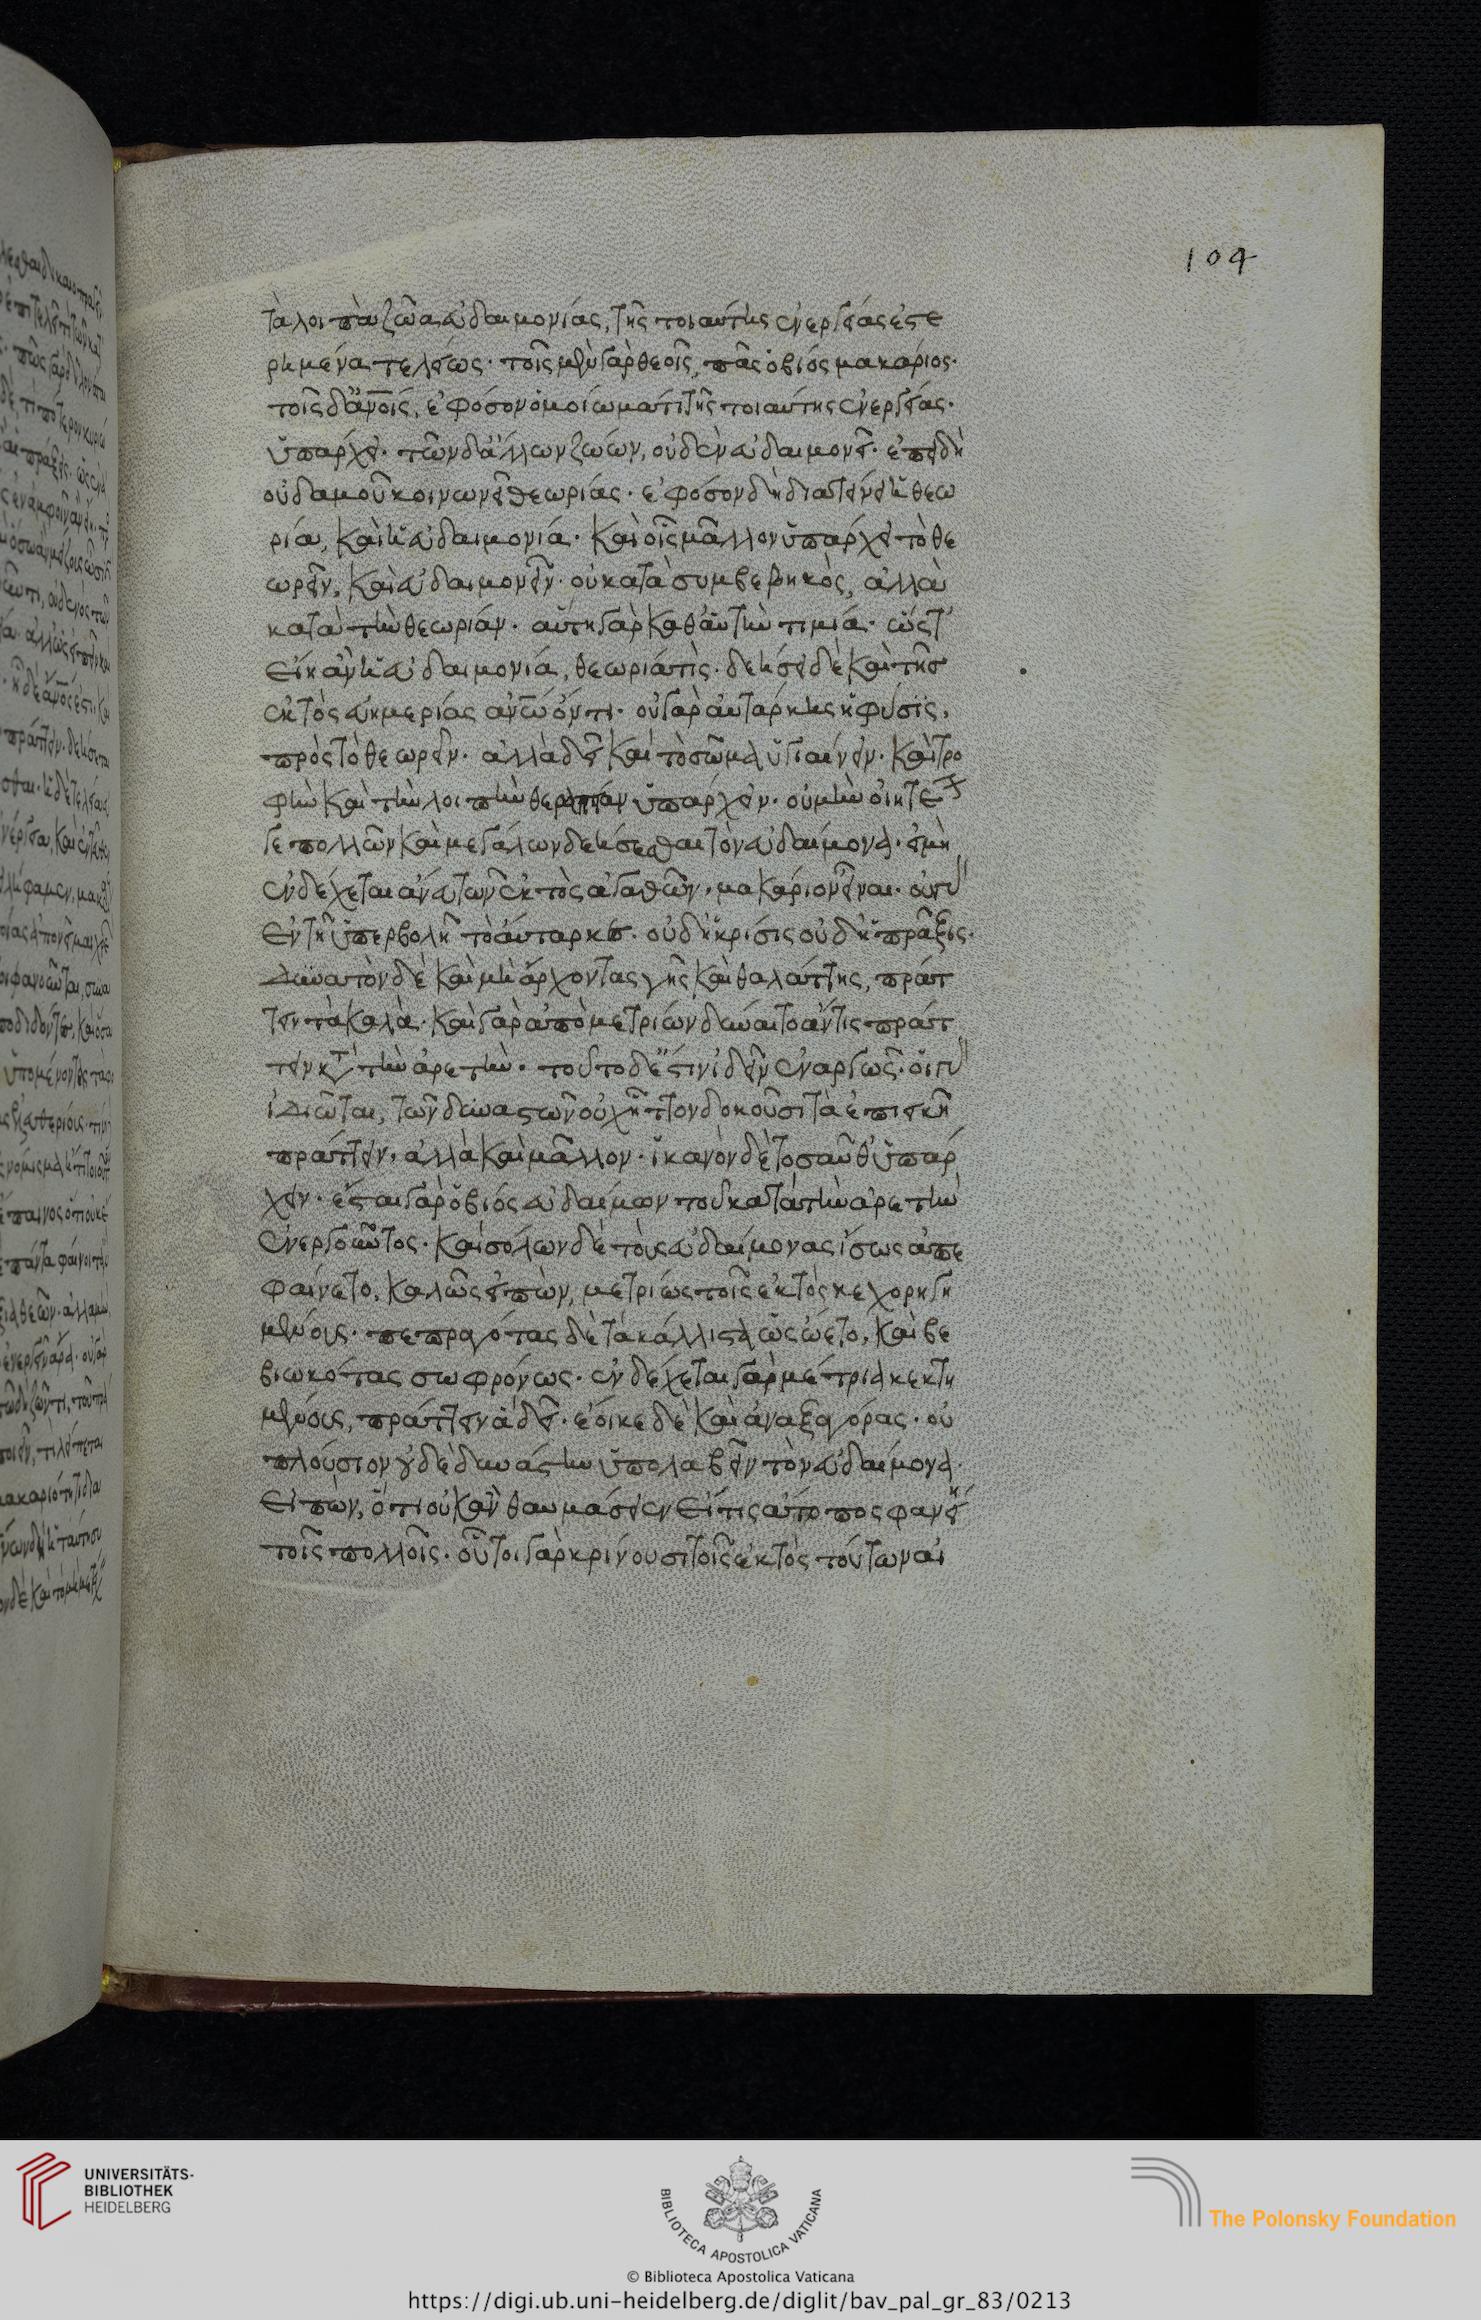 104
τὰ λοιπὰ ζῶα εὐδαιμονίας, τῆς τοιαύτης ἐνεργείας ἐστε
ρημένα τελείως· τοῖς μὲν γὰρ θεοῖς, πᾶς ὁ βίος μακάριος·
τοῖς δ' ἀνοις, ἐφόσον ὁμοίωμά τι τῆς τοιαύτης ἐνεργείας·
ὑπάρχει· τῶν δ' ἄλλων ζώων, οὐδὲν εὐδαιμονεῖ· ἐπειδὴ
οὐδαμοῦ κοινωνεῖ θεωρίας· ἐφόσον δὴ διατείνει ἡ θεω
ρία, καὶ ἡ εὐδαιμονία· καὶ οἷς μᾶλλον ὑπάρχει τὸ θε
ωρεῖν, καὶ εὐδαιμονεῖν· οὐ κατὰ συμβεβηκὸς, ἀλλὰ
κατὰ τὴν θεωρίαν· αὕτη γὰρ καθ' αὑτὴν τιμία· ὥστ'
εἴη ἂν ἡ εὐδαιμονία, θεωρία τὶς· δεήσει δὲ καὶ τῆς
ἐκτὸς εὐημερίας ἀνω ὄντι· οὐ γὰρ αὐτάρκης ἡ φύσις,
πρὸς τὸ θεωρεῖν· ἀλλὰ δεῖ καὶ τὸ σῶμα ὑγιαίνειν· καὶ τρο
φὴν καὶ τὴν λοιπὴν θεραπείαν ὑπάρχειν· οὐ μὴν οἰητέον
γε πολλῶν καὶ μεγάλων δεήσεσθαι τὸν εὐδαίμονα· εἰ μὴ
ἐνδέχεται ἄνευ τῶν ἐκτὸς ἀγαθῶν, μακάριον εἶναι· οὐ γὰρ
ἐν τῇ ὑπερβολῇ τὸ αὔταρκες· οὐδ' ἡ κρίσις οὐδ' ἡ πρᾶξις·
δυνατὸν δὲ καὶ μὴ ἄρχοντας γῆς καὶ θαλάττης, πράτ
τειν τὰ καλὰ· καὶ γὰρ ἀπὸ μετρίων δύναιτο ἄν τις πράτ
τειν κατὰ τὴν ἀρετὴν· τοῦτο δ' ἔστιν ἰδεῖν ἐναργῶς· οἱ γὰρ
ἰδιῶται, τῶν δυναστῶν οὐχ ἧττον δοκοῦσι τὰ ἐπιεικῆ
πράττειν, ἀλλὰ καὶ μᾶλλον· ἱκανὸν δὲ τοσαῦθ' ὑπάρ
χειν· ἔσται γὰρ ὁ βίος εὐδαίμων τοῦ κατὰ τὴν ἀρετὴν
ἐνεργοῦντος· καὶ σόλων δὲ τοὺς εὐδαίμονας ἴσως ἀπε
φαίνετο, καλῶς εἰπὼν, μετρίως τοῖς ἐκτὸς κεχορηγη
μένους· πεπραγότας δὲ τὰ κάλλιστα ὡς ᾤετο, καὶ βε
βιωκότας σωφρόνως· ἐνδέχεται γὰρ μέτρια κεκτη
μένους, πράττειν ἃ δεῖ· ἔοικε δὲ καὶ ἀναξαγόρας· οὐ
πλούσιον οὐδὲ δυνάστην ὑπολαβεῖν τὸν εὐδαίμονα·
εἰπών, ὅτι οὐκ ἂν θαυμάσειεν εἴ τις ἄτοπος φανείη
τοῖς πολλοῖς· οὗτοι γὰρ κρίνουσι τοῖς ἐκτὸς τούτων αἰ
UNIVERSITÄTS-
BIBLIOTHEK
HEIDELBERG
BIBLIOTECA APOSTOLICA VATICANA
© Biblioteca Apostolica Vaticana
The Polonsky Foundation
https://digi.ub.uni-heidelberg.de/diglit/bav_pal_gr_83/0213